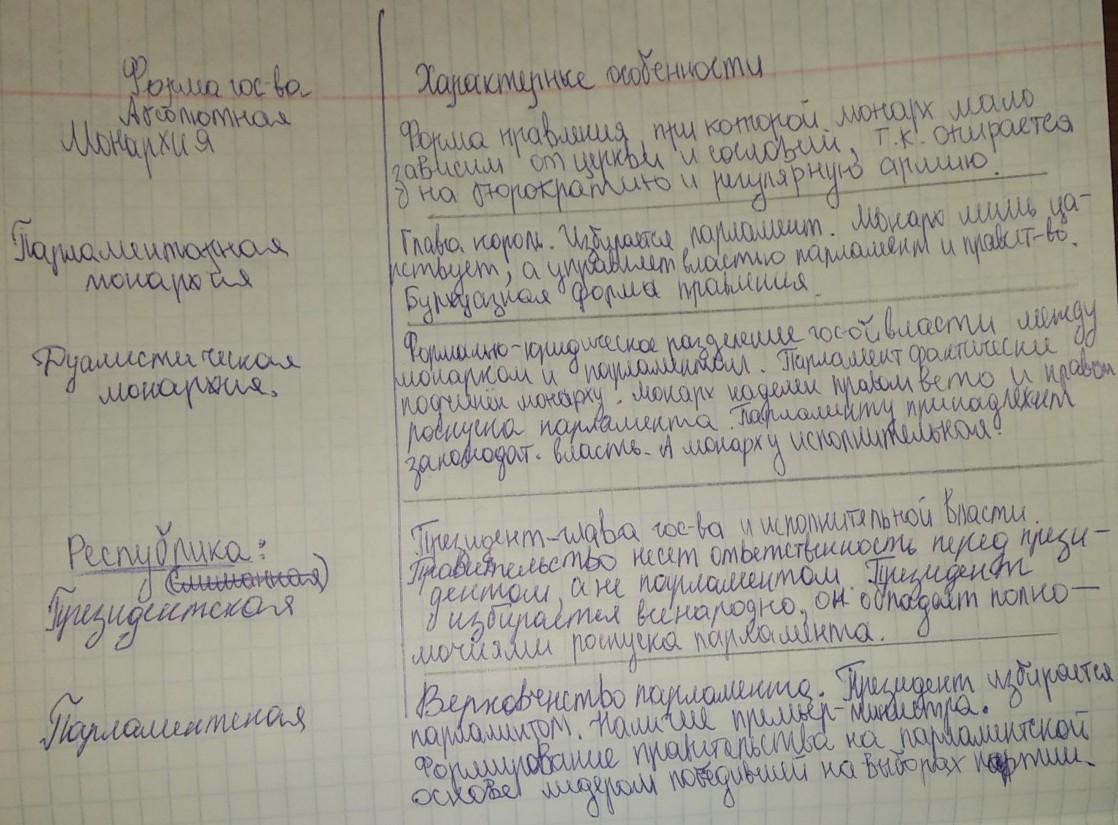 Форма гос-ва
Характерные особенности
Абсолютная
Монархия
Форма правления, при которой монарх мало
зависим от церкви и сословий, т.к. опирается
на бюрократию и регулярную армию.
Парламентарная
монархия
Глава король. Избирается парламент. Монарх лишь ца-
рствует, а управляет властью парламент и правит-во.
Буржуазная форма правления.
Дуалистическая
монархия.
Формально-юридическое разделение гос-ой власти между
монархом и парламентом. Парламент фактически
подчинён монарху. Монарх наделен правом вето и правом
роспуска парламента. Парламенту принадлежит
законодат. власть. А монарху исполнительная.
Республика:
(Смешанная)
Президентская
Президент-глава гос-ва и исполнительной власти.
Правительство несет ответственность перед прези-
дентом, а не парламентом. Президент
избирается всенародно, он обладает полно-
мочиями роспуска парламента.
Парламентская
Верховенство парламента. Президент избирается
парламентом. Наличие премьер-министра.
Формирование правительства на парламентской
основе лидером победивший на выборах партии.